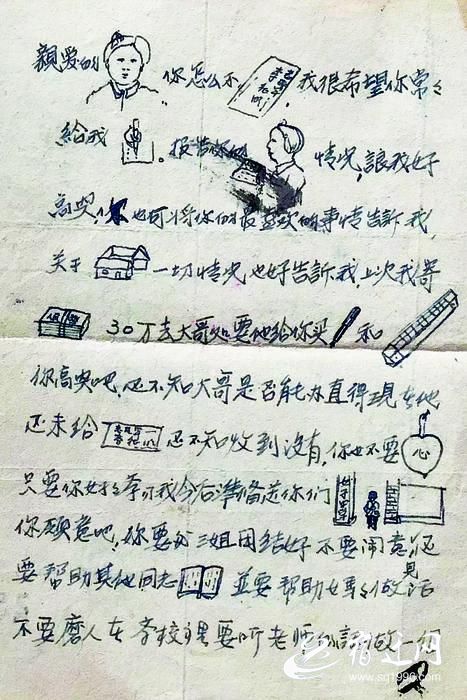 親爱的 你怎么不 ，我很希望你常々
給我 。报告你的 情况，讓我好
高兴，你也可将你们最喜欢的事情告訴我，
关于 一切情况也好告訴我，上次我寄
30万去大哥处要他给你买 和
你高兴吧，还不知大哥是否能办直得現在他
还未给 还不知收到没有，你也不要 心
只要你好々 我今后準备送你们
你願意吧，你要与三姐团结好不要闹意见还
要帮助其他同志 並要帮助妈々做 活
不要磨人在学校裡要听老师的話做一個
宿迁网
www.sq1996.com